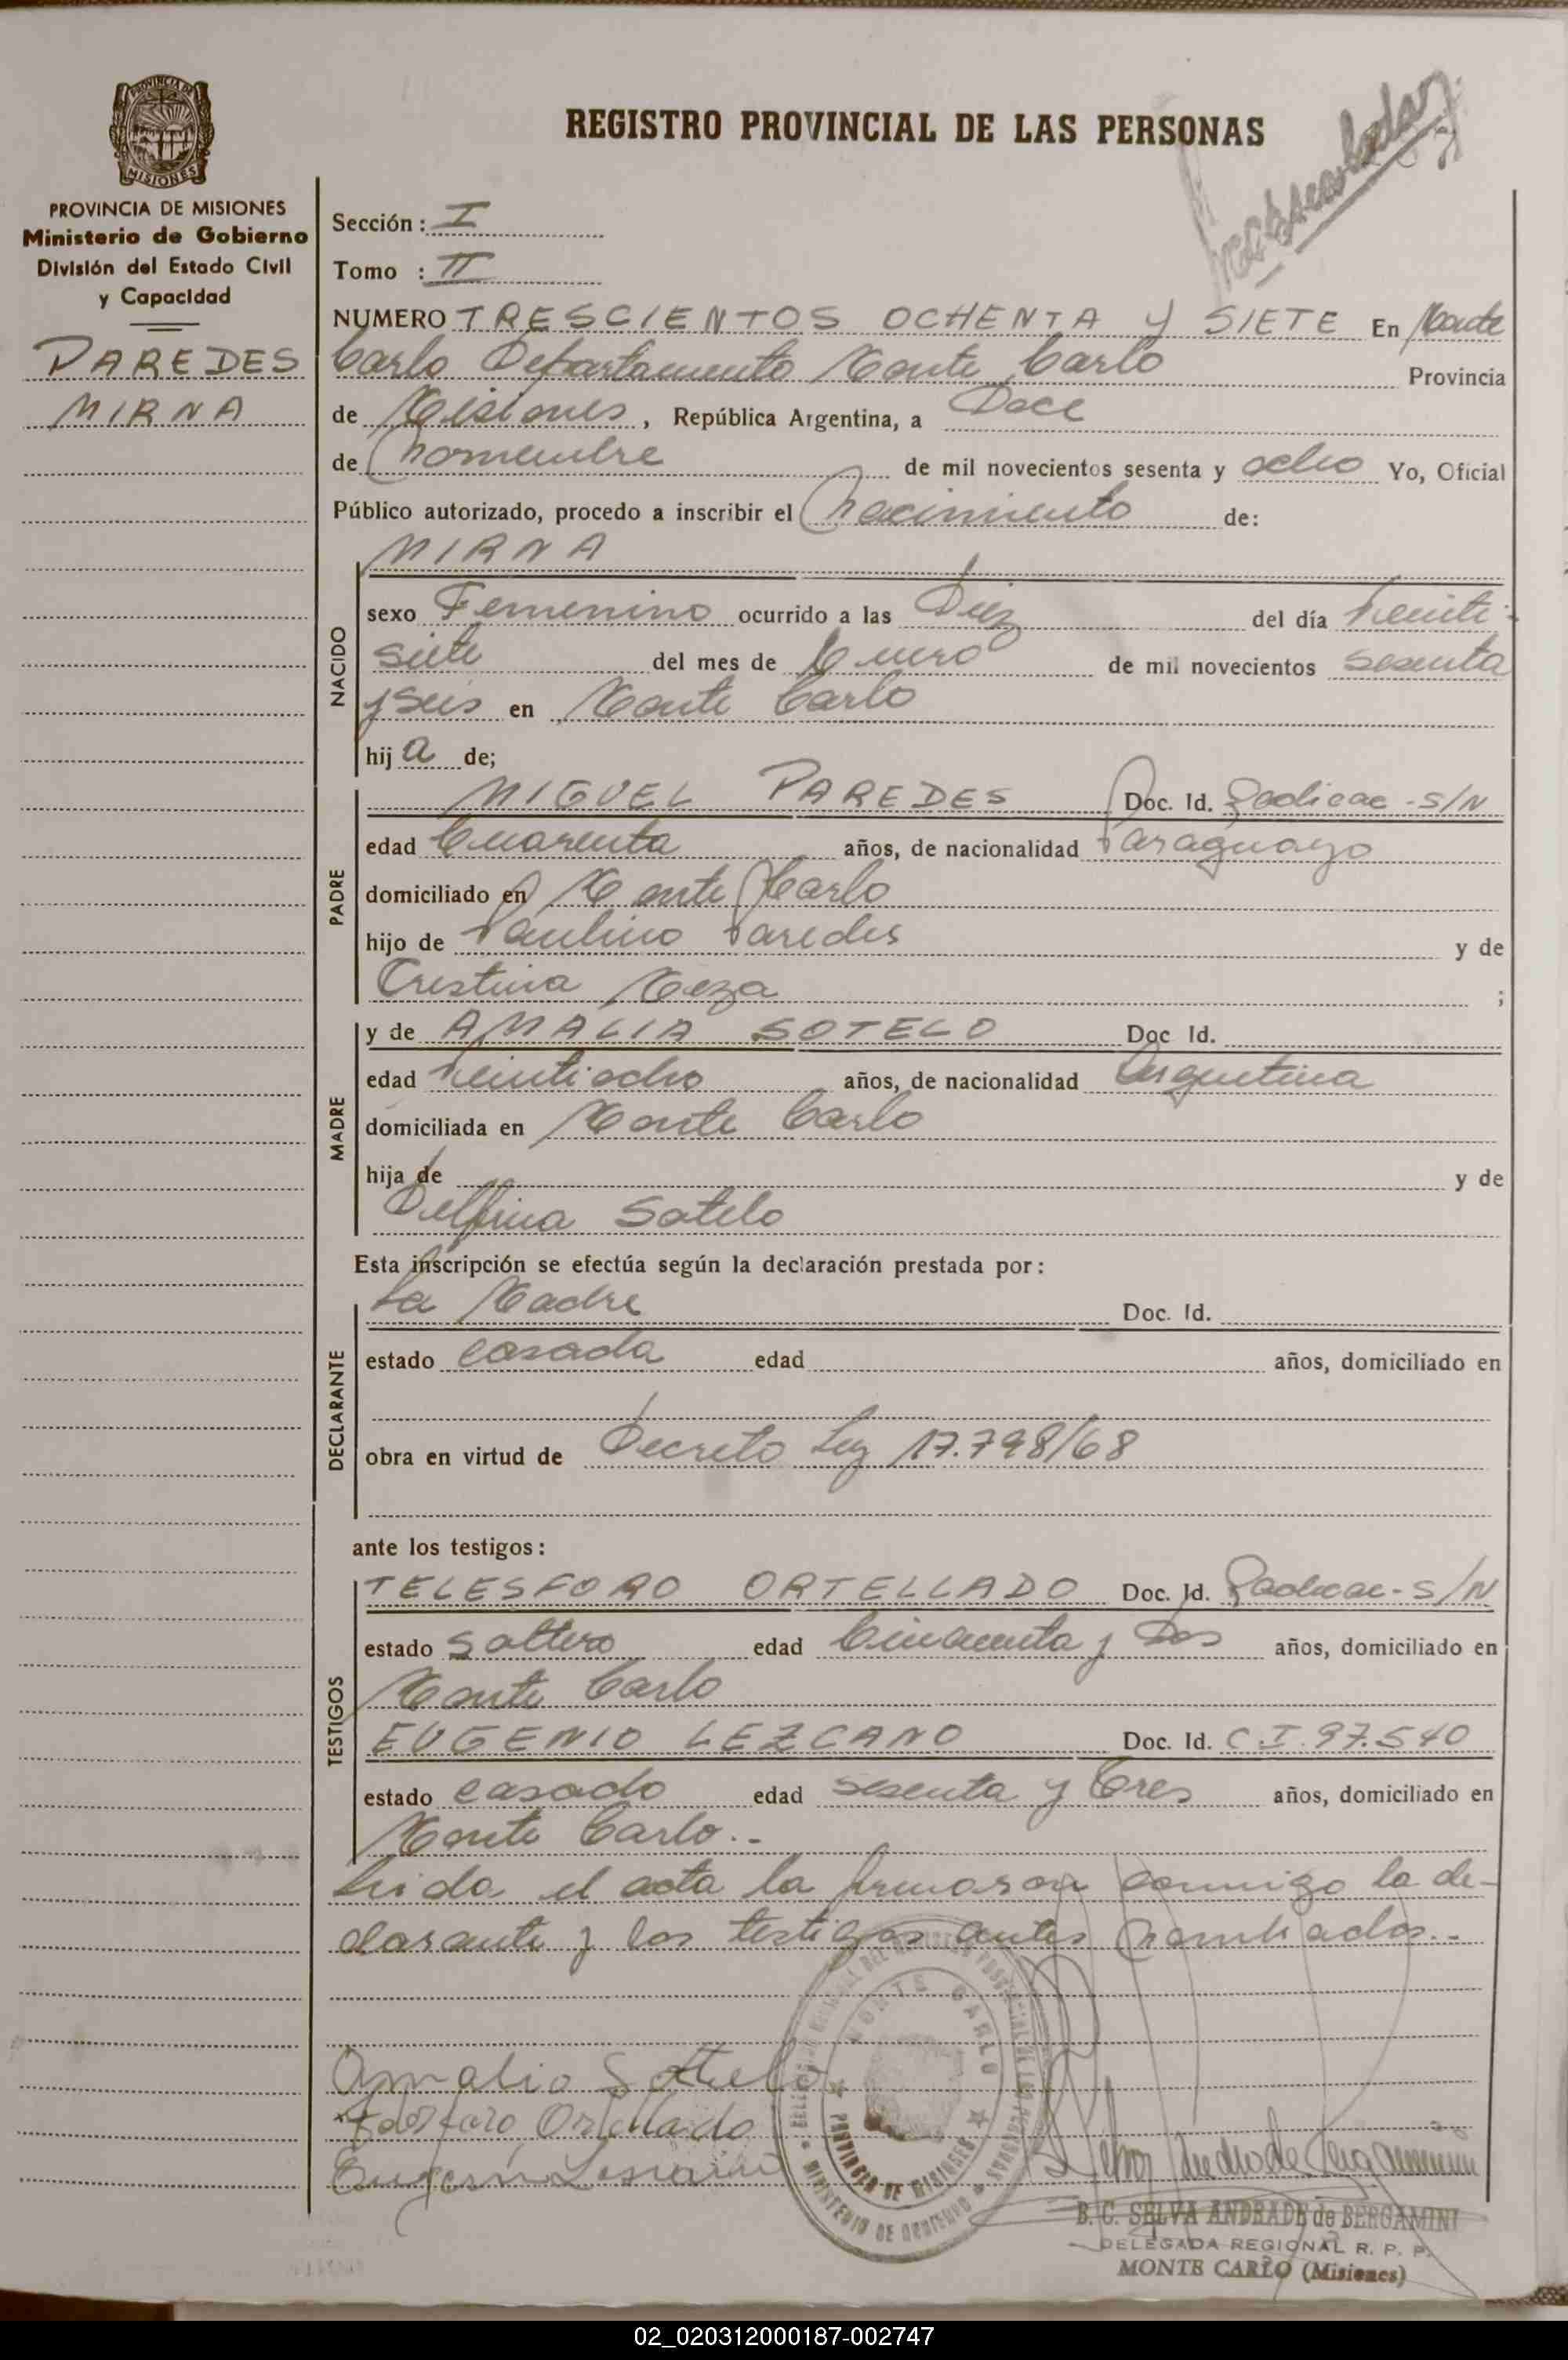 REGISTRO PROVINCIAL DE LAS PERSONAS
PROVINCIA DE
MISIONES
PROVINCIA DE MISIONES
Ministerio de Gobierno
División del Estado Civil
y Capacidad
PAREDES
MIRNA
Sección: I
Tomo : II
NUMERO TRESCIENTOS OCHENTA Y SIETE En Monte
Carlo Departamento Monte Carlo Provincia
de Misiones, República Argentina, a Doce
de noviembre de mil novecientos sesenta y ocho Yo, Oficial
Público autorizado, procedo a inscribir el nacimiento de:
MIRNA
NACIDO
sexo Femenino ocurrido a las Diez del día Veinti-
siete del mes de Enero de mil novecientos sesenta
y seis en Monte Carlo
hija de;
PADRE
MIGUEL PAREDES Doc. Id. Radicac - S/N
edad Cuarenta años, de nacionalidad Paraguayo
domiciliado en Monte Carlo
hijo de Paulino Paredes y de
Crestina Meza ;
MADRE
y de AMALIA SOTELO Doc Id.
edad Veintiocho años, de nacionalidad Argentina
domiciliada en Monte Carlo
hija de y de
Delfina Sotelo
Esta inscripción se efectúa según la declaración prestada por:
DECLARANTE
La Madre Doc. Id.
estado casada edad años, domiciliado en
obra en virtud de Decreto Ley 17.798/68
ante los testigos:
TESTIGOS
TELESFORO ORTELLADO Doc. Id. Radicac - S/N
estado soltero edad Cincuenta y Dos años, domiciliado en
Monte Carlo
EUGENIO LEZCANO Doc. Id. C.I. 97.540
estado casado edad sesenta y tres años, domiciliado en
Monte Carlo..-
Leida el acta la firmaron conmigo la de-
clarante y los testigos antes nombrados..-
MONTE CARLO
PROVINCIA DE MISIONES
MINISTERIO DE GOBIERNO
Amalia Sotelo
Ortellado
B. C. SELVA ANDRADE de BERGAMINI
DELEGADA REGIONAL R. P. P.
MONTE CARLO (Misiones)
02_020312000187-002747